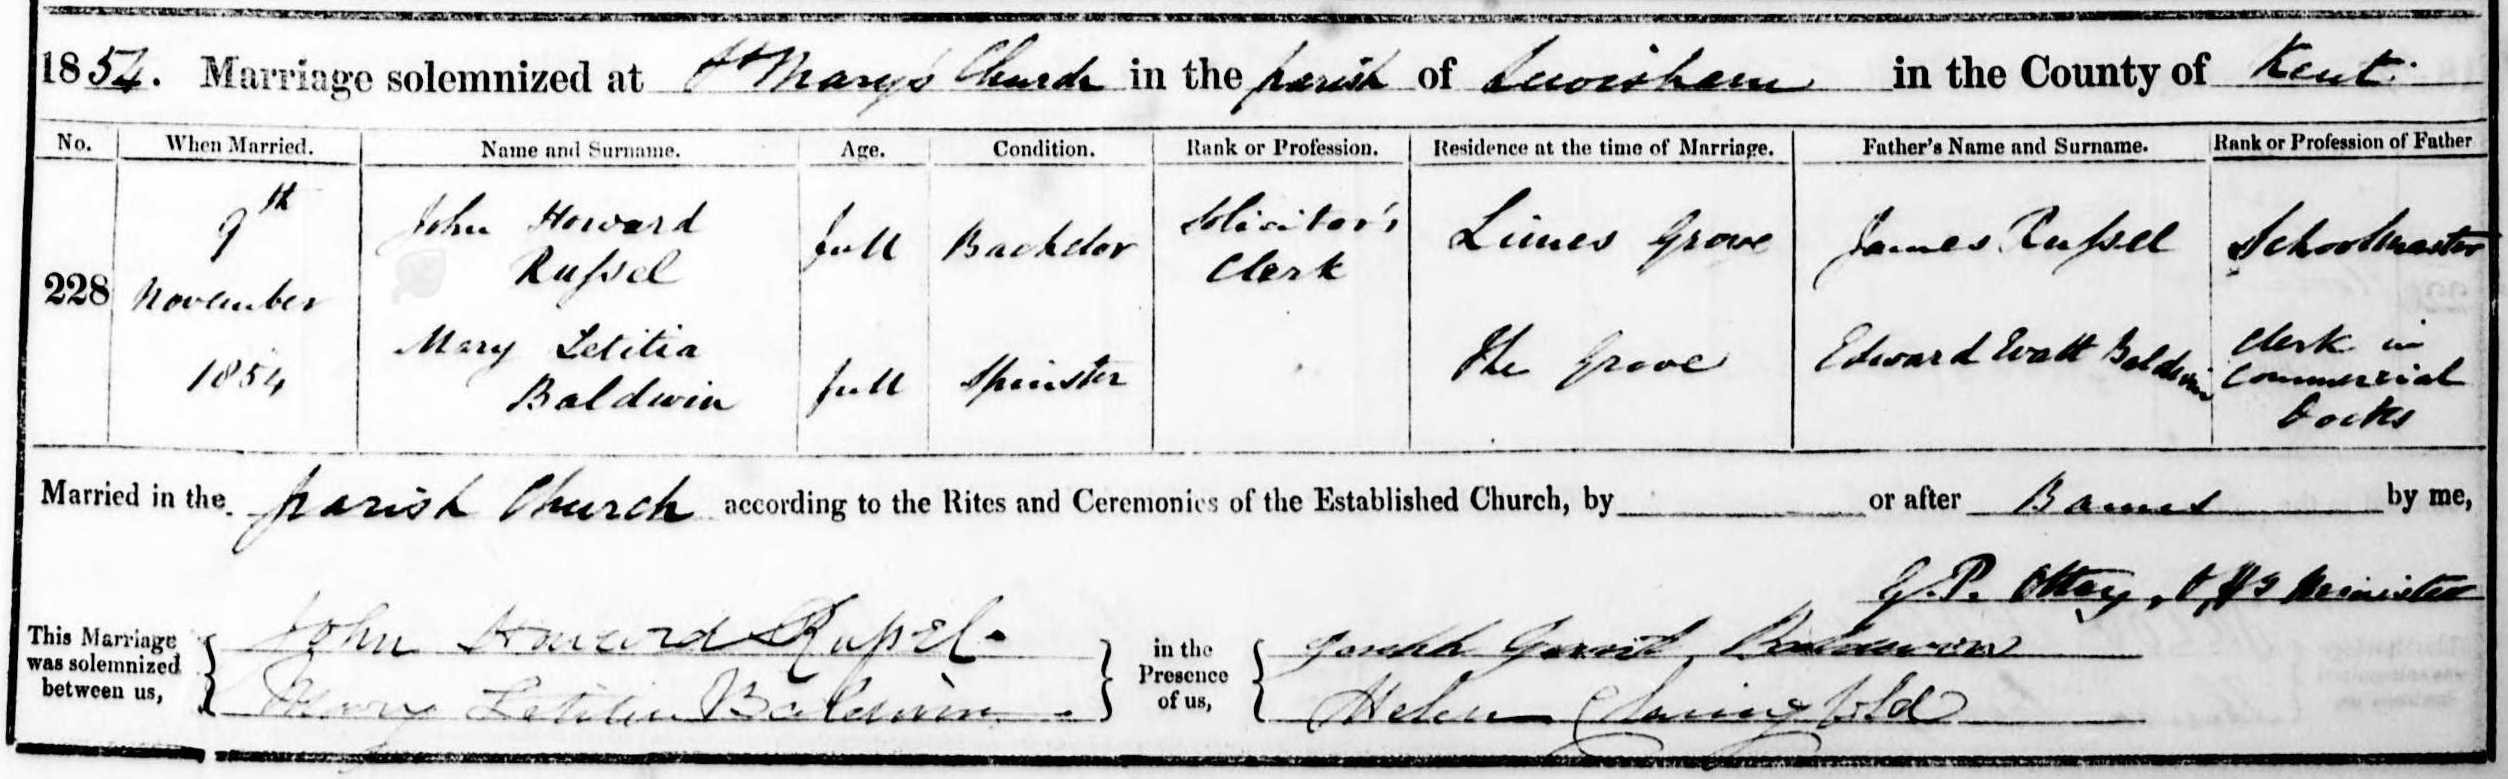 1854. Marriage solemnized at St Mary's Church in the parish of Lewisham in the County of Kent.
No. When Married. Name and Surname. Age. Condition. Rank or Profession. Residence at the time of Marriage. Father's Name and Surname. Rank or Profession of Father
228 9th November 1854
John Howard Russel full Bachelor Solicitor's Clerk Limes Grove James Russel Schoolmaster
Mary Letitia Baldwin full Spinster The Grove Edward Watt Baldwin Clerk in Commercial Docks
Married in the parish Church according to the Rites and Ceremonies of the Established Church, by or after Banns by me,
G. P. Ottey, Minister
This Marriage was solemnized between us, John Howard Russel. Mary Letitia Baldwin
in the Presence of us, Joseph Baldwin Helen